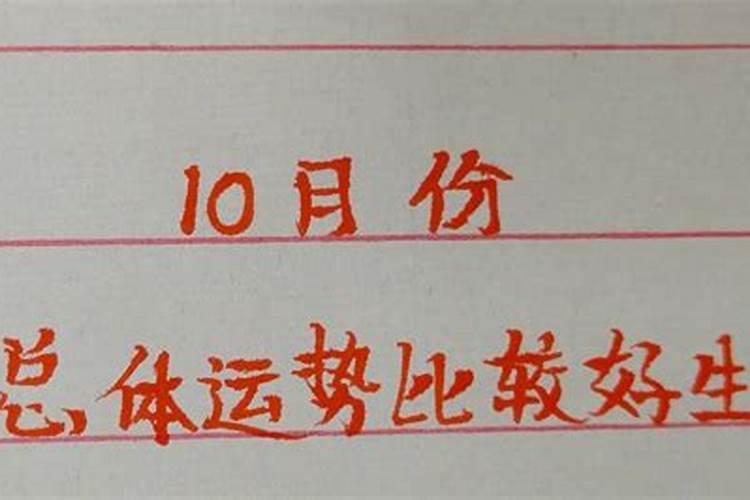 10月份
总体运势比较好生